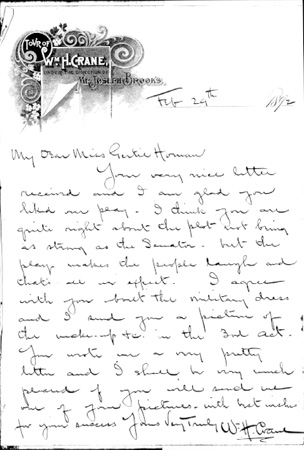 TOUR OF
WM H. CRANE,
UNDER THE DIRECTION OF
MR. JOSEPH BROOKS.
Feb 29th 1892
My Dear Miss Gertie Homan
Your very nice letter
received and I am glad you
liked our play. I think you are
quite right about the plot not being
as strong as the Senator. but the
play makes the people laugh and
thats all we expect. I agree
with you about the military dress
and I send you a picture of
the make-up &c. in the 3rd Act.
You wrote me a very pretty
letter and I shall be very much
pleased if you will send me
one of your pictures. with best wishes
for your success Yours Very Truly Wm H Crane